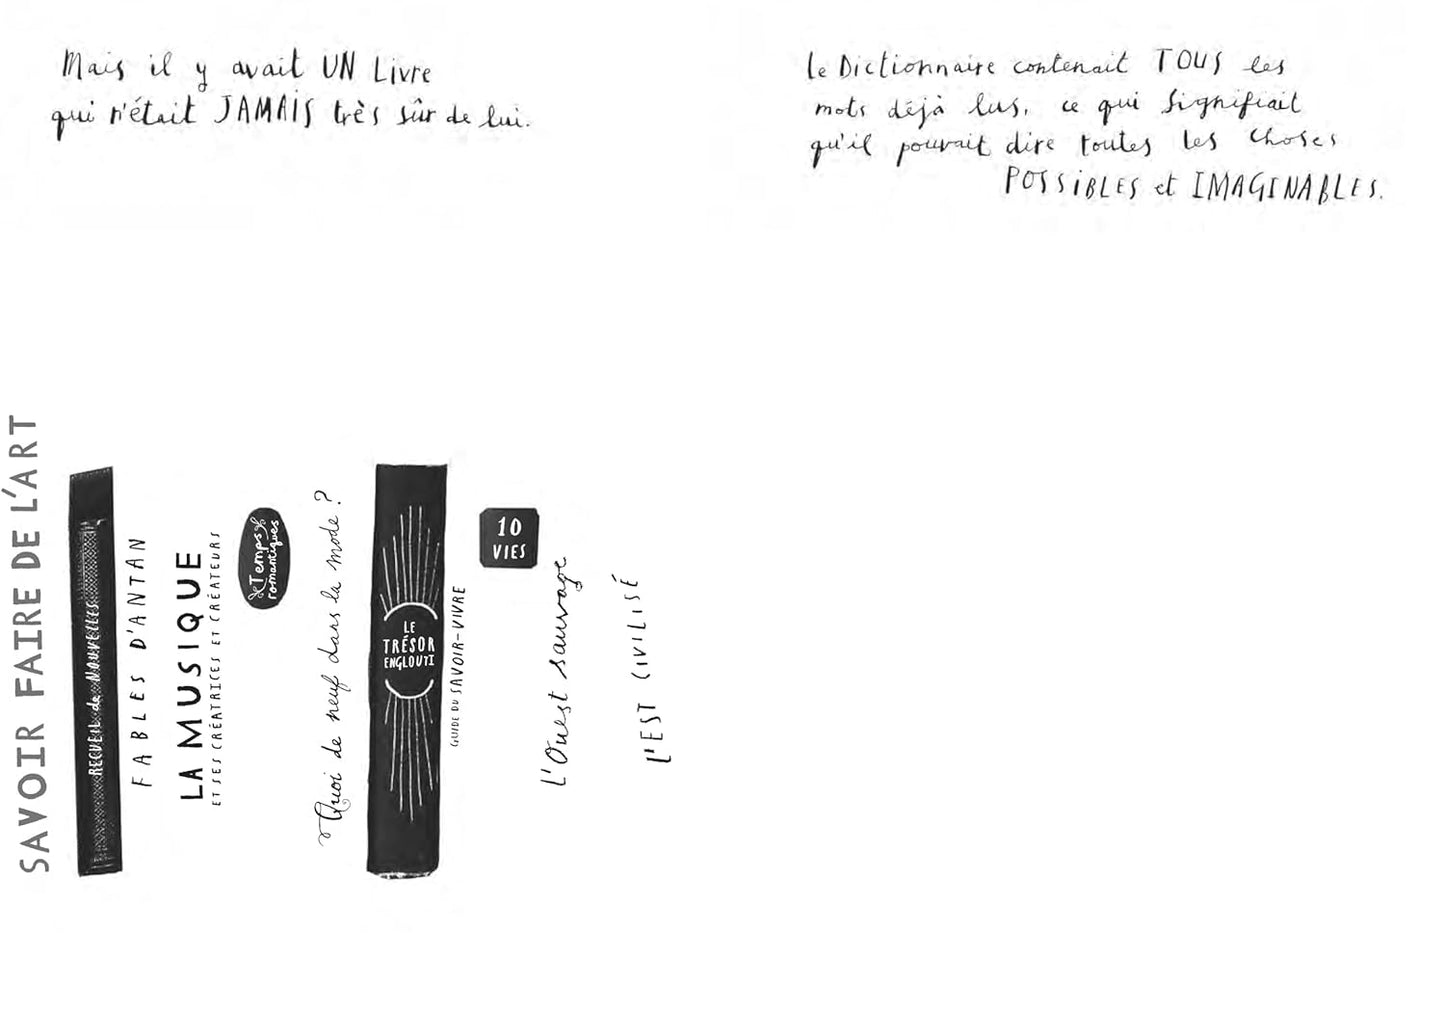 Mais il y avait UN Livre
qui n'était JAMAIS très sûr de lui.
Le Dictionnaire contenait TOUS les
mots déjà lus, ce qui signifiait
qu'il pouvait dire toutes les choses
POSSIBLES et IMAGINABLES.
SAVOIR FAIRE DE L'ART
RECUEIL de NOUVELLES
FABLES D'ANTAN
LA MUSIQUE
ET SES CRÉATRICES ET CRÉATEURS
Temps
romantiques
Quoi de neuf dans la mode?
LE
TRÉSOR
ENGLOUTI
GUIDE DU SAVOIR-VIVRE
10
VIES
L'Ouest sauvage
L'EST CIVILISÉ